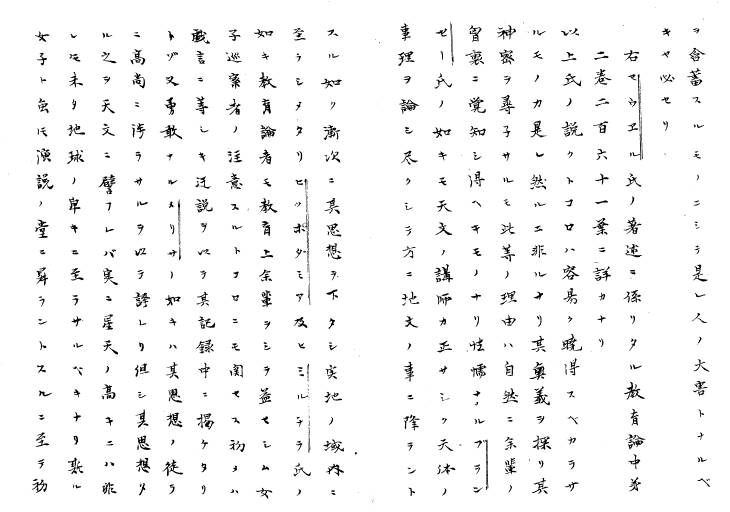 ヲ含蓄スルモノニシテ是レ人ノ大害トナルベ
キヤ必セリ
右マウヱル氏ノ著述ニ係リタル教育論中第
二巻二百六十一葉ニ詳カナリ
以上氏ノ説クトコロハ容易ク暁得スベカラサ
ルモノカ是レ然ルニ非ルナリ其奥義ヲ探リ其
神密ヲ尋子サルモ此等ノ理由ハ自然ニ余輩ノ
胷裏ニ覚知シ得ヘキモノナリ怯懦ナルブラン
セー氏ノ如キモ天文ノ講師カ正サシク天体ノ
事理ヲ論シ尽クシテ方ニ地文ノ事ニ降ラント
スル如ク漸次ニ其思想ヲ下タシ実地ノ域内ニ
至ラシメタリヒッポダミア及ヒミルテラ氏ノ
如キ教育論者モ教育上余輩ヲシテ益セシム女
子巡察者ノ注意スルトコロニモ関セス初メハ
戯言ニ等シキ迂説ヲ以テ其記録中ニ掲ケタリ
トゾ又勇敢ナルメリサノ如キハ其思想ノ徒ラ
ニ高尚ニ渉ラサルヲ以テ誇レリ但シ其思想タ
ル之ヲ天文ニ譬フレバ実ニ星天ノ高キニハ非
レモ未タ地球ノ卑キニ至ラサルベキナリ斯ル
女子ト虽モ演説ノ堂ニ昇ラントスルニ至テ初